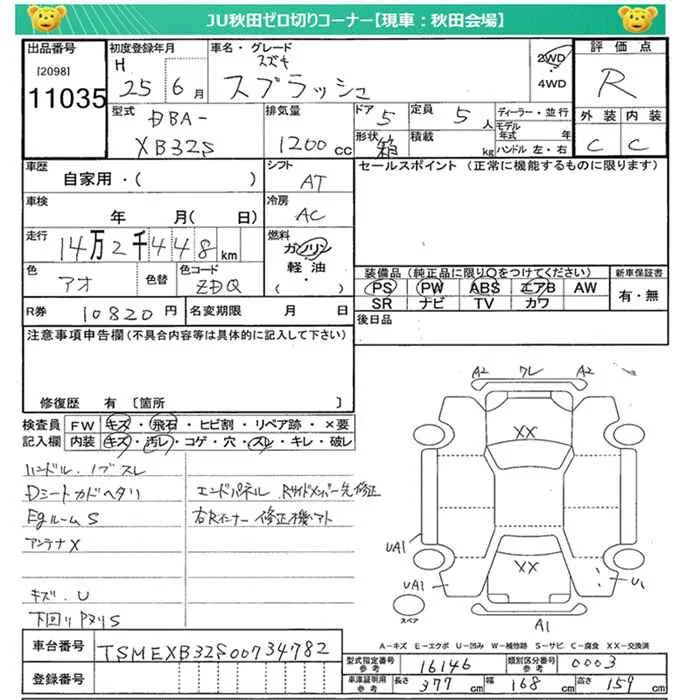 JU秋田ゼロ切りコーナー【現車：秋田会場】
出品番号
[2098]
11035
初度登録年月
H 25年6月
車名・グレード
スズキ
スプラッシュ
2WD
4WD
評価点
R
外装 内装
C C
型式
DBA-
XB32S
排気量
1200 cc
ドア 5
定員 5人
形状 箱
積載 kg
ディーラー・並行
モデル年式 年
ハンドル 左・右
車歴
自家用・( )
シフト
AT
セールスポイント (正常に機能するものに限ります)
車検
年 月( 日)
冷房
AC
走行
14万2千448km
燃料
ガソリン
軽油
・( )
色
アオ
色替
色コード
ZDQ
装備品 (純正品に限り○をつけてください)
PS PW ABS エアB AW
SR ナビ TV カワ
新車保証書
有・無
R券 10820円
名変期限 月 日
後日品
注意事項申告欄(不具合内容等は具体的に記入して下さい)
修復歴 有 〔箇所 〕
検査員記入欄
FW キズ・飛石・ヒビ割・リペア跡・×要
内装 キズ・汚レ・コゲ・穴・スレ・キレ・破レ
ハンドル.ノブスレ
Dシートカドヘタリ
EgルームS
アンテナX
キズ.U
下回りPヌリS
エンドパネル.Rサイドメンバー先修正
右Rインナー修正機アト
A2 ワレ A2
XX
UA1
UA1
XX
U1
A1
スペア
A-キズ E-エクボ U-凹み W-補修跡 S-サビ C-腐食 XX-交換済
車台番号 TSMEXB32S00734782
登録番号
型式指定番号 参考 16146
類別区分番号 参考 0003
車庫証明 参考 長さ 377cm 幅 168cm 高さ 159cm